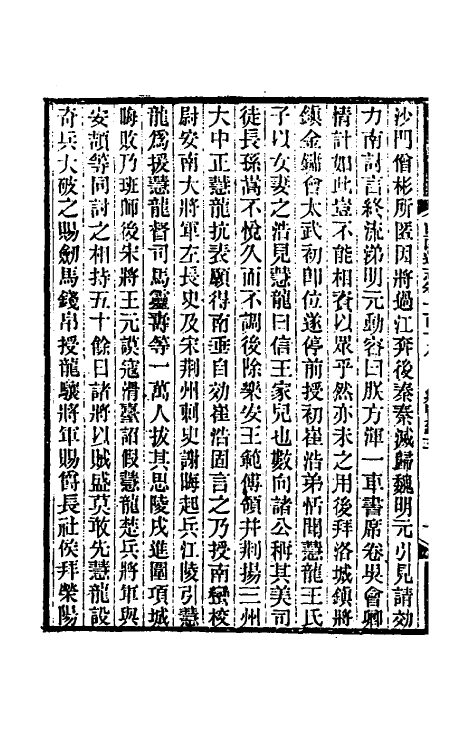 沙門僧彬所匿因將過江奔後秦秦滅歸魏明元引見請効
力南討言終流涕明元動容曰朕方渾一車書席卷吳會卿
情計如此豈不能相資以眾乎然亦未之用後拜洛城鎮將
鎮金鏞會太武初即位遂停前授初崔浩弟恬聞慧龍王氏
子以女妻之浩見慧龍曰信王家兒也數向諸公稱其美司
徒長孫嵩不悅久而不調後除樂安王範傅領并荆揚三州
大中正慧龍抗表願得南垂自効崔浩固言之乃授南蠻校
尉安南大將軍左長史及宋荆州刺史謝晦起兵江陵引慧
龍爲援慧龍督司馬靈壽等一萬人拔其思陵戍進圍項城
晦敗乃班師後宋將王元謨寇滑臺詔假慧龍楚兵將軍與
安頡等同討之相持五十餘日諸將以賊盛莫敢先慧龍設
奇兵大破之賜劒馬錢帛授龍驤將軍賜爵長社侯拜滎陽